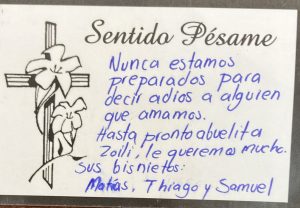 Sentido Pésame
Nunca estamos
preparados para
decir adios a alguien
que amamos.
Hasta pronto abuelita
Zoili, le queremos mucho.
Sus bisnietos:
Matías, Thiago y Samuel